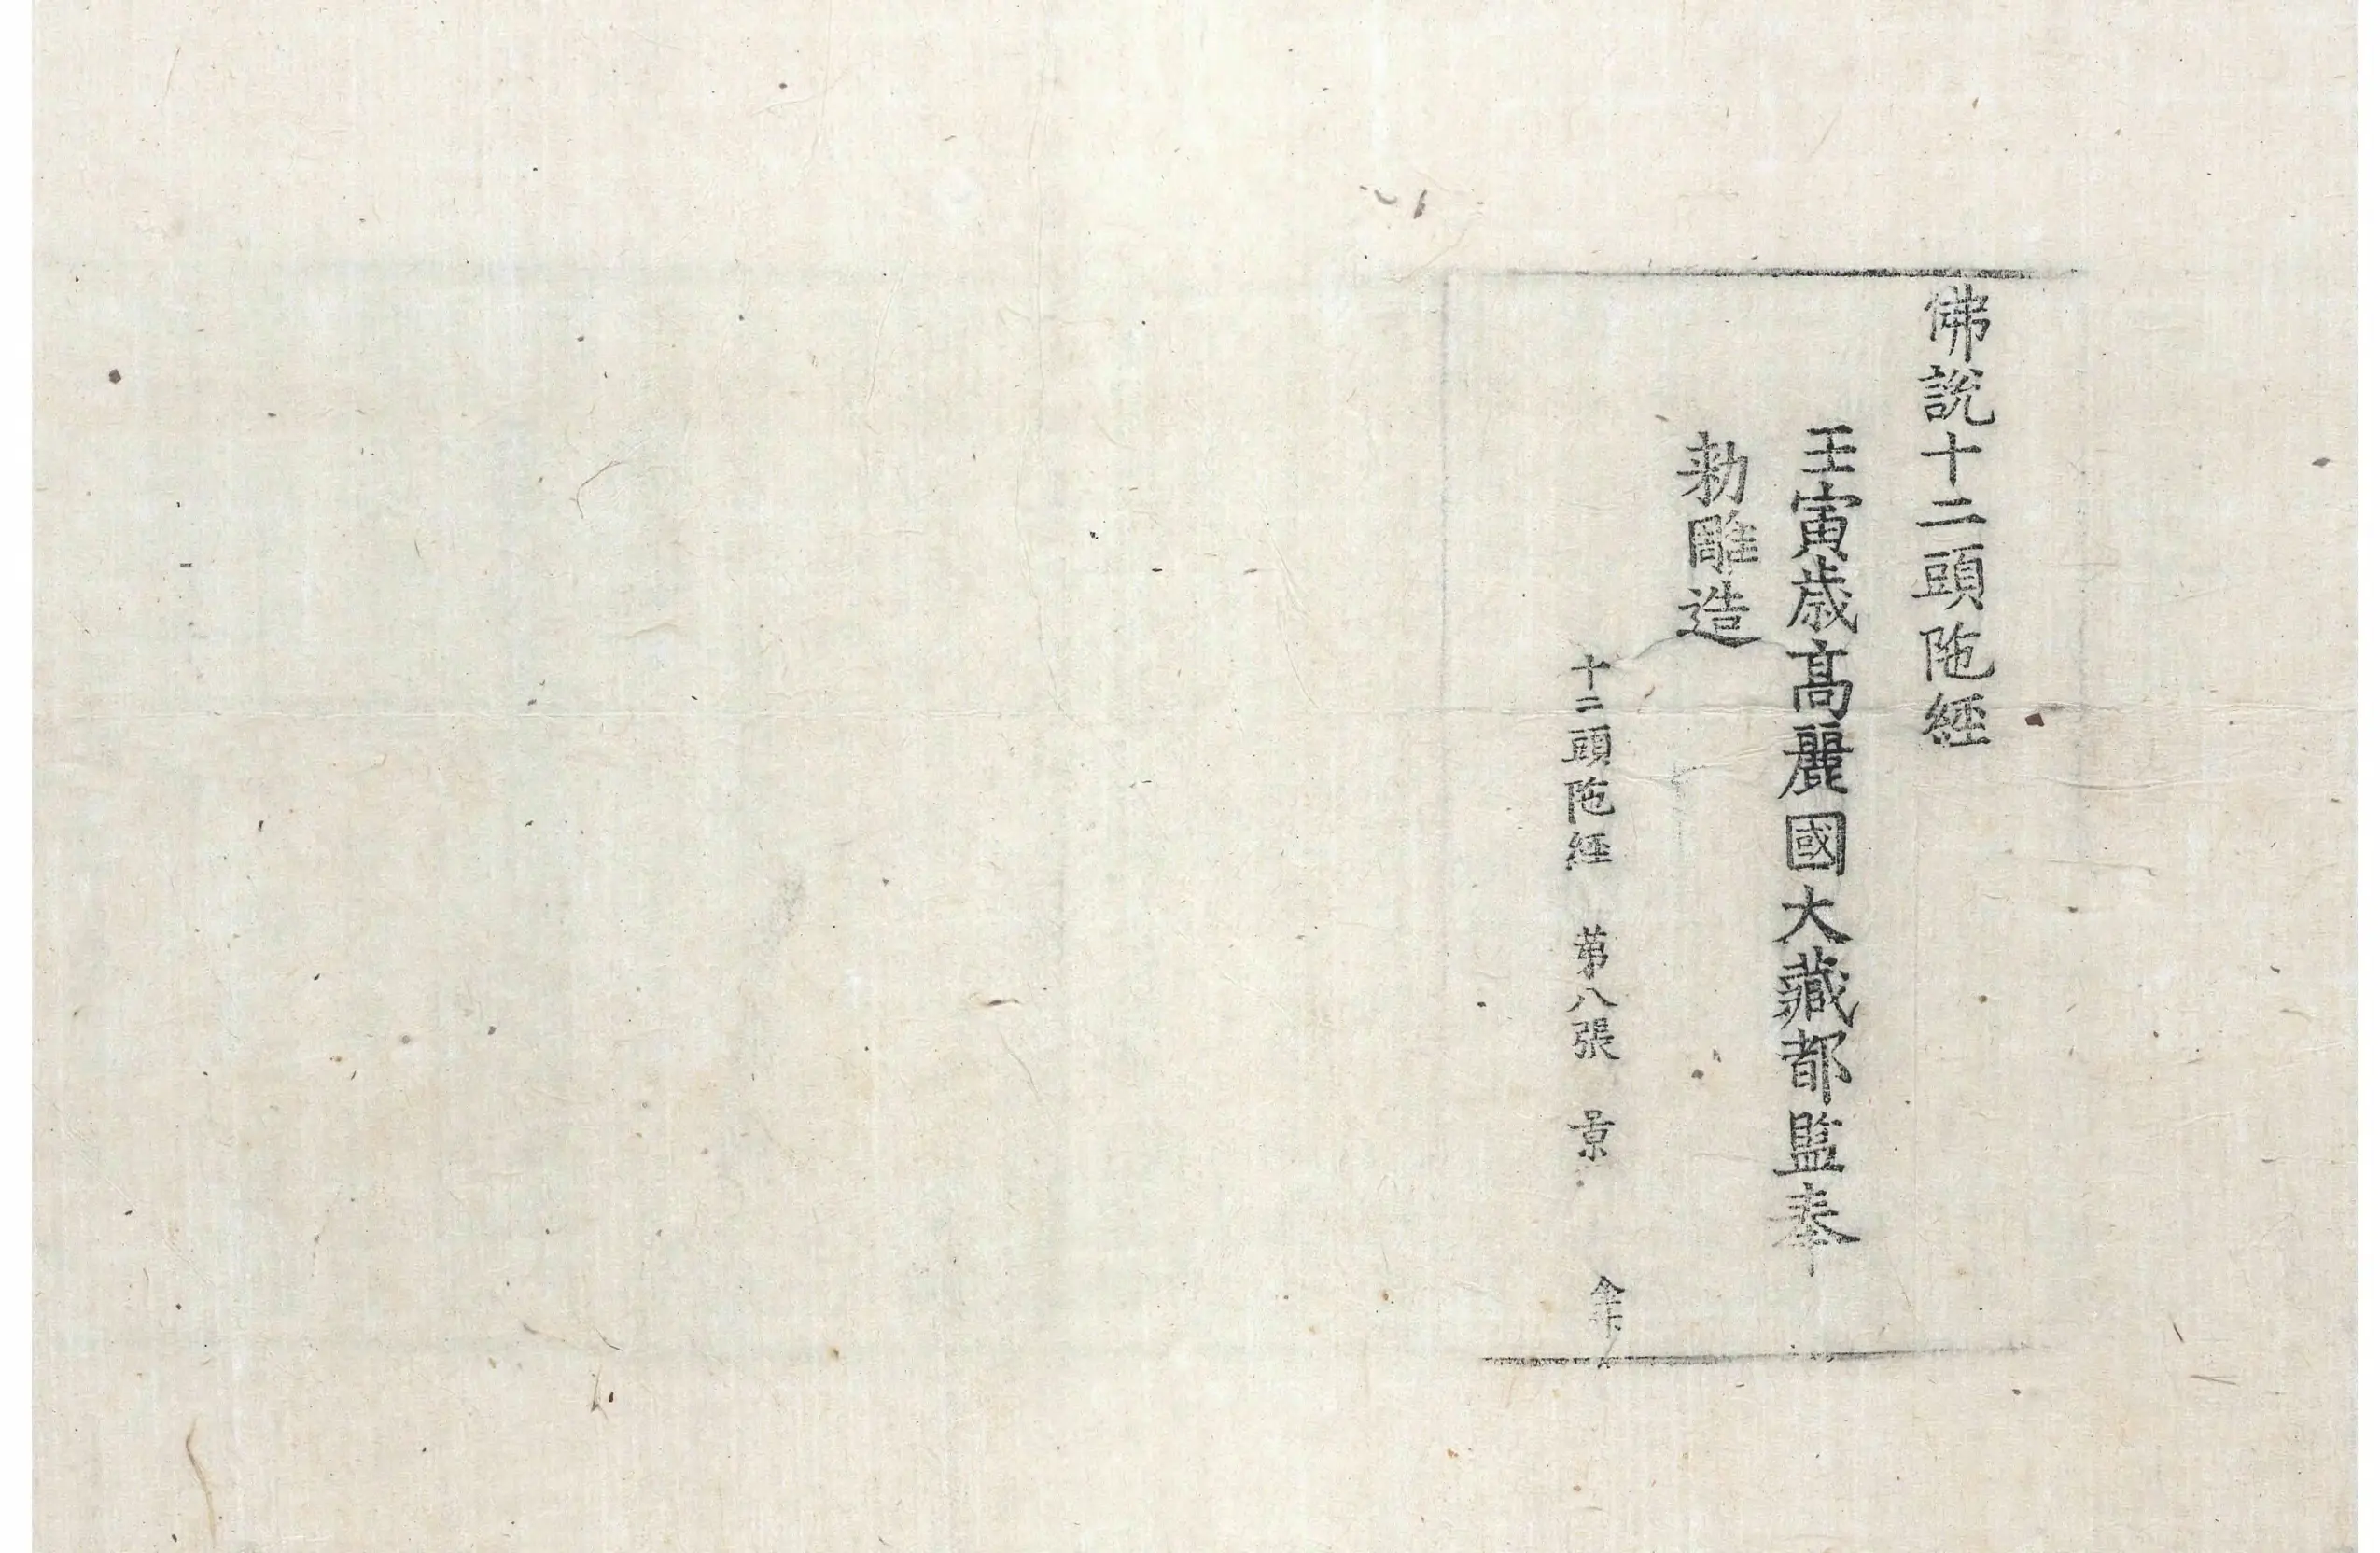 佛說十二頭陁經
壬寅歲高麗國大藏都監奉
勅雕造
十二頭陁經 第八張 景